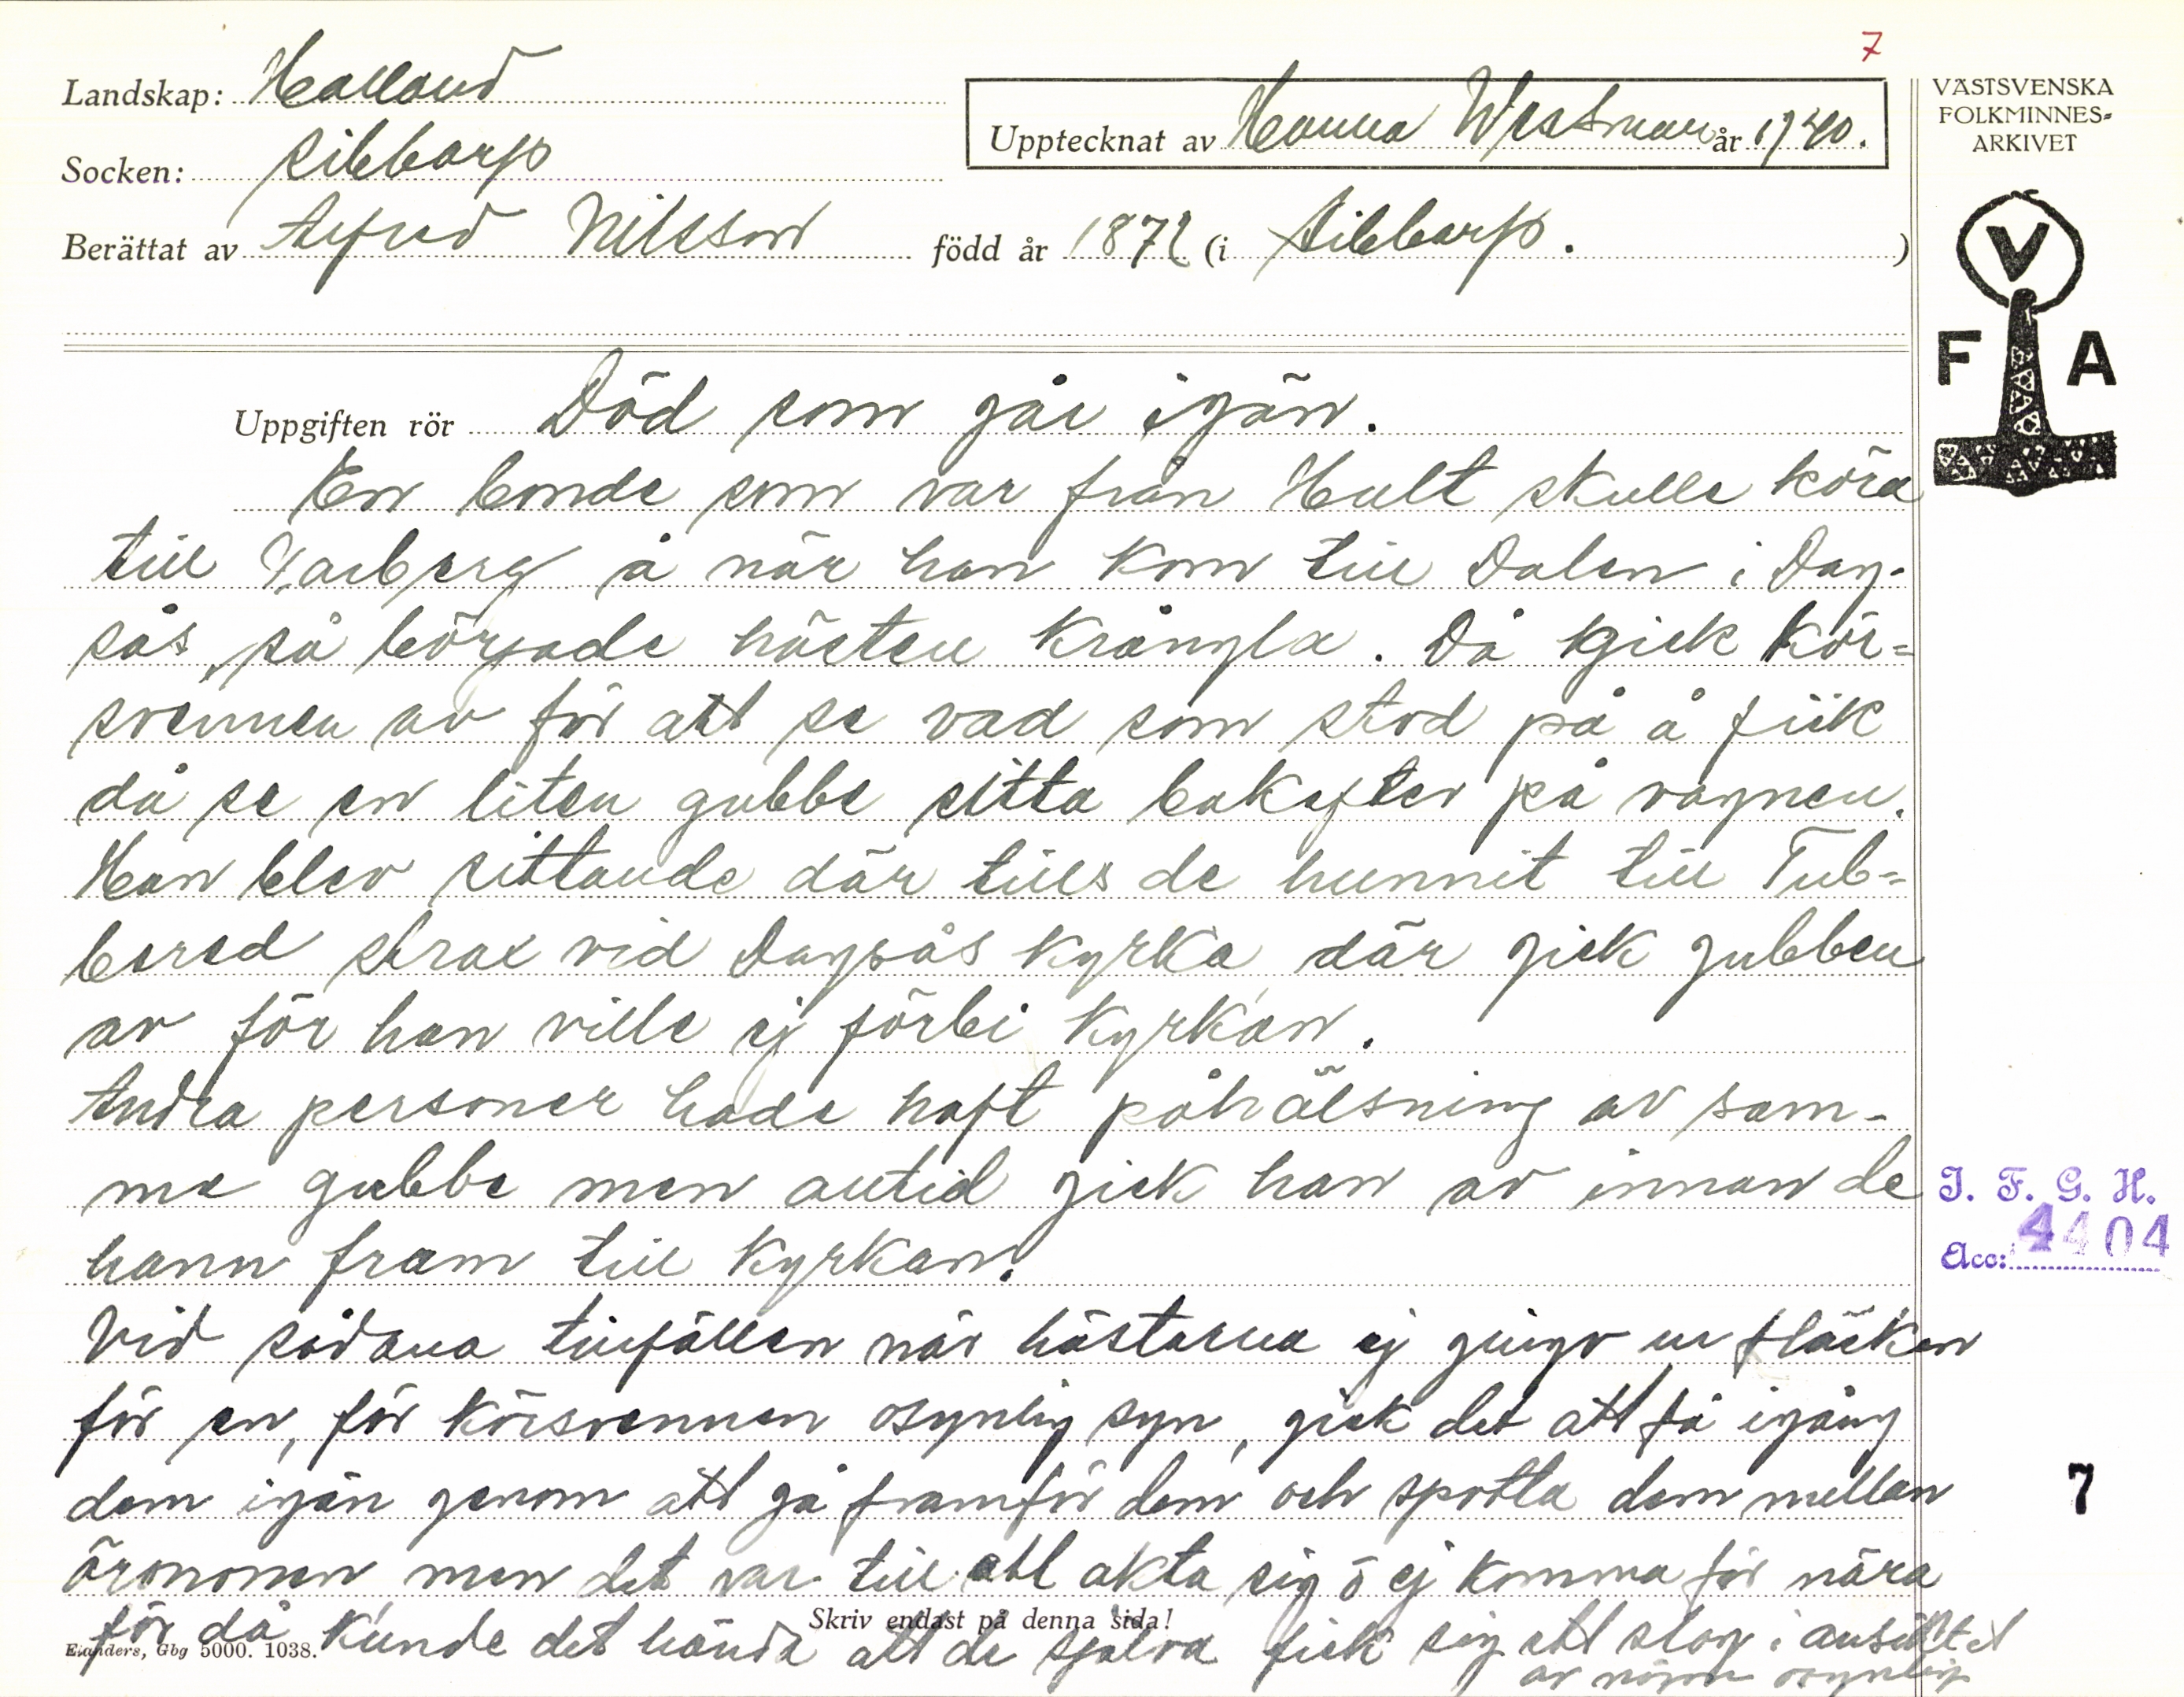 7
Landskap: Halland
Upptecknat av Hanna Westman år 1940.
VÄSTSVENSKA
FOLKMINNES-
ARKIVET
Socken: Sibbarp
Berättat av Alfred Nilsson född år 1872 (i Sibbarp.)
V
F A
Uppgiften rör Död som går igän.
En bonde som var från Hult skulle köra
till Varberg å när han kom till Dalen i Dag-
sås, så började hästen krångla. Då gick kör=
svennen av för att se vad som stod på å fick
då se en liten gubbe sitta bakefter på vagnen.
Han blev sittande där tills de hunnit till Tub=
bered strax vid Dagsås kyrka, där gick gubben
av för han ville ej förbi kyrkan.
Andra personer hade haft påhälsning av sam-
me gubbe men altid gick han av innan de
hann fram till kyrkan.
Vid sådana tillfällen när hästarna ej gingo ur fläcken
för en, för körsvennen osynlig syn, gick det att få igång
dem igän genom att gå framför dem och spotta dem mellan
öronen men det var till att akta sig å ej komma för nära
för då kunde det hända att de själva fick sig ett slag i ansiktet
av någon osynlig
Skriv endast på denna sida!
Elanders, Gbg 5000. 1038.
I. F. G. H.
Acc: 4404
7